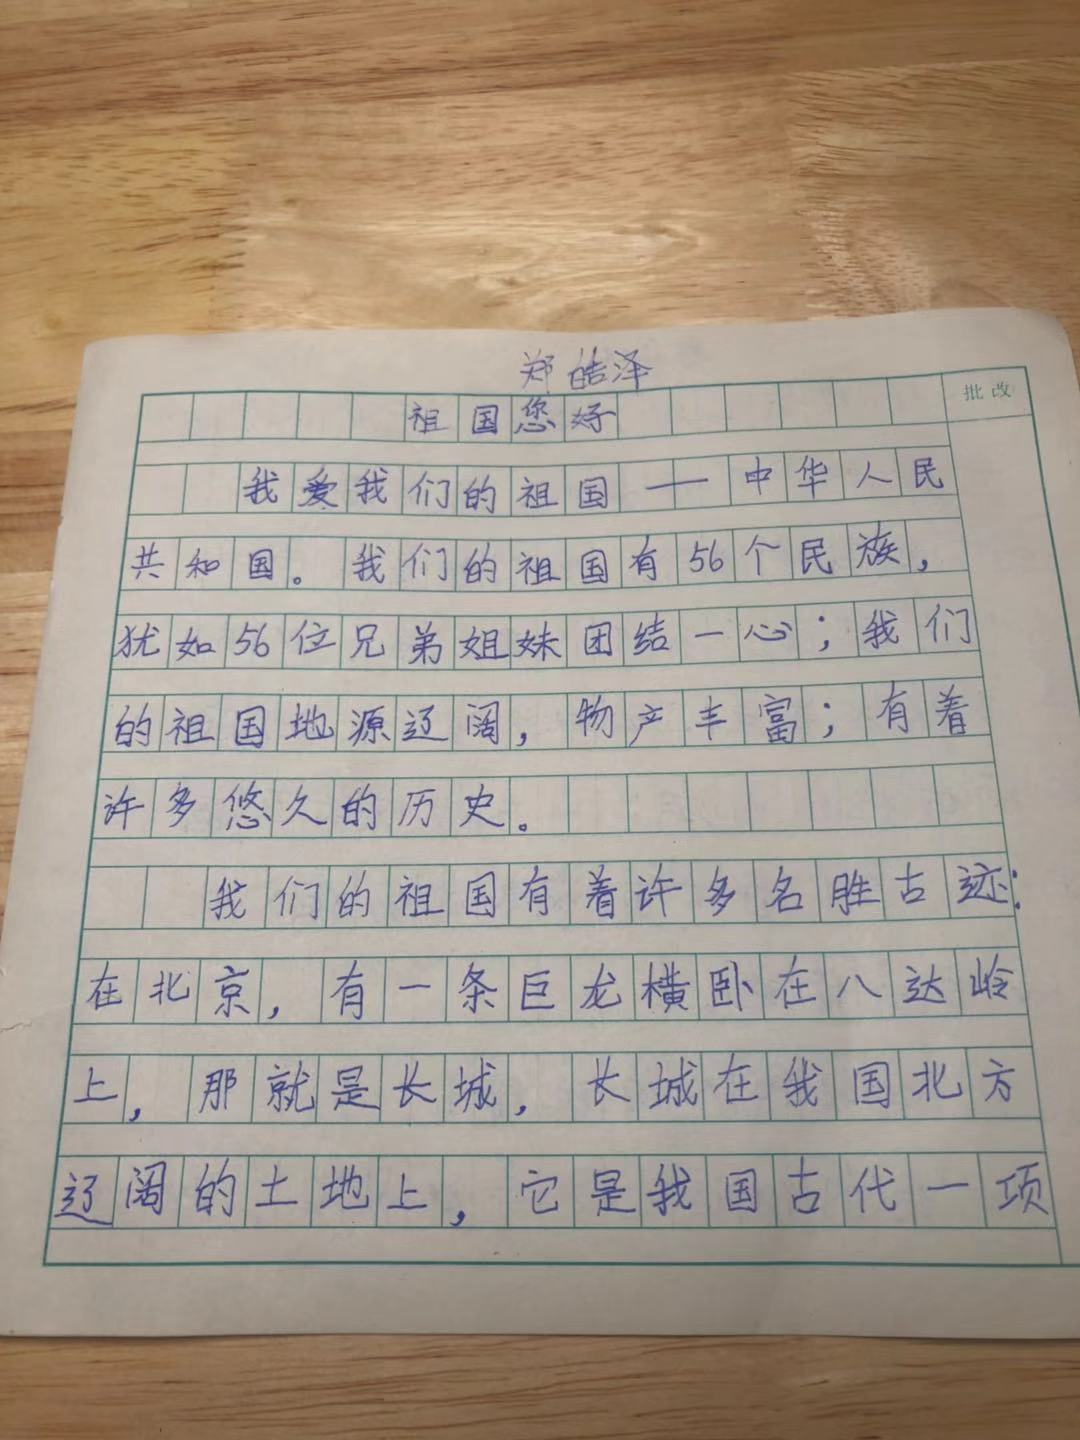 郑皓泽
批改
祖国您好
我爱我们的祖国——中华人民
共和国。我们的祖国有56个民族，
犹如56位兄弟姐妹团结一心；我们
的祖国地源辽阔，物产丰富；有着
许多悠久的历史。
我们的祖国有着许多名胜古迹：
在北京，有一条巨龙横卧在八达岭
上，那就是长城，长城在我国北方
辽阔的土地上，它是我国古代一项